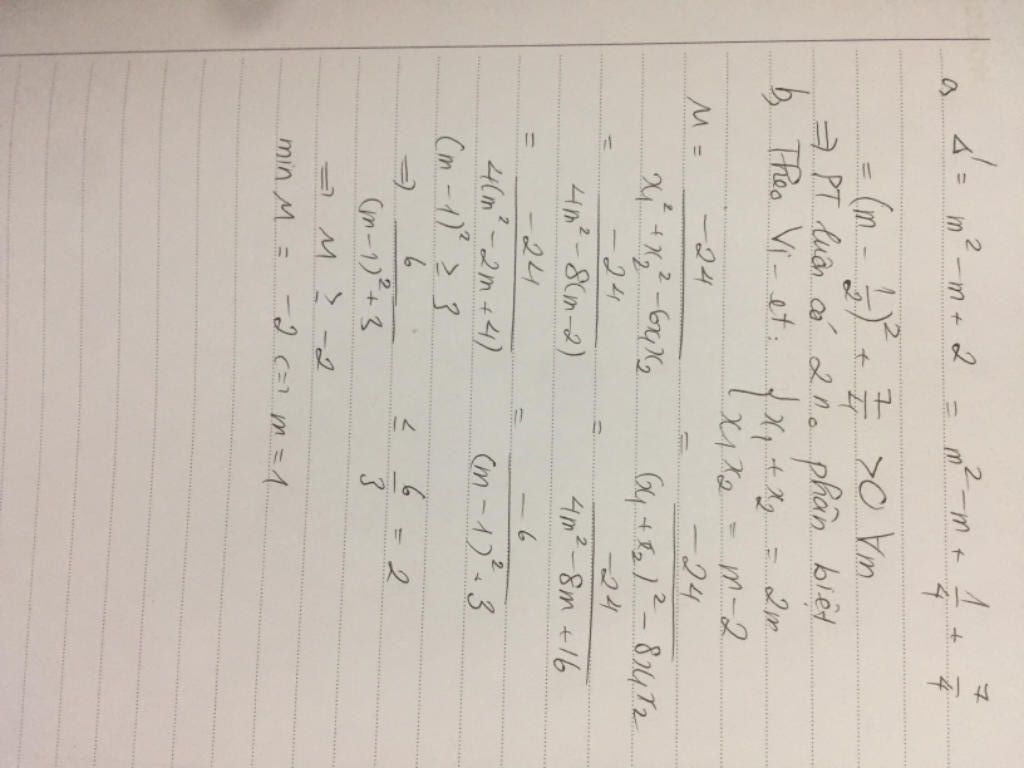 a, Δ' = m² - m + 2 = m² - m + 1/4 + 7/4
= (m - 1/2)² + 7/4 > 0 ∀m
⇒ PT luôn có 2 n₀ phân biệt
b, Theo Vi-et: { x₁ + x₂ = 2m
x₁x₂ = m - 2
M = -24/(x₁² + x₂² - 6x₁x₂) = -24/((x₁ + x₂)² - 8x₁x₂)
= -24/(4m² - 8(m - 2)) = -24/(4m² - 8m + 16)
= -24/(4(m² - 2m + 4)) = -6/((m - 1)² + 3)
(m - 1)² ≥ 3
⇒ 6/((m - 1)² + 3) ≤ 6/3 = 2
⇒ M ≥ -2
min M = -2 <=> m = 1